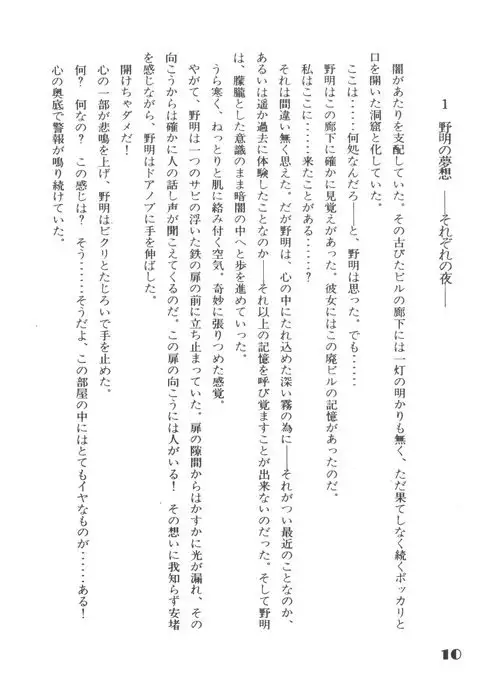 1　野明の夢想――それぞれの夜――
闇があたりを支配していた。その古びたビルの廊下には一灯の明かりも無く、ただ果てしなく続くポッカリと
口を開いた洞窟と化していた。
ここは‥‥‥何処なんだろ――と、野明は思った。でも‥‥‥
野明はこの廊下に確かに見覚えがあった。彼女にはこの廃ビルの記憶があったのだ。
私はここに‥‥‥来たことがある‥‥‥？
それは間違い無く思えた。だが野明は、心の中にたれ込めた深い霧の為に――それがつい最近のことなのか、
あるいは遥か過去に体験したことなのか――それ以上の記憶を呼び覚ますことが出来ないのだった。そして野明
は、朦朧とした意識のまま暗闇の中へと歩を進めていった。
うら寒く、ねっとりと肌に絡み付く空気。奇妙に張りつめた感覚。
やがて、野明は一つのサビの浮いた鉄の扉の前に立ち止まっていた。扉の隙間からはかすかに光が漏れ、その
向こうからは確かに人の話し声が聞こえてくるのだ。この扉の向こうには人がいる！　その想いに我知らず安堵
を感じながら、野明はドアノブに手を伸ばした。
開けちゃダメだ！
心の一部が悲鳴を上げ、野明はビクリとたじろいで手を止めた。
何？　何なの？　この感じは？　そう‥‥‥そうだよ、この部屋の中にはとてもイヤなものが‥‥‥ある！
心の奥底で警報が鳴り続けていた。
10